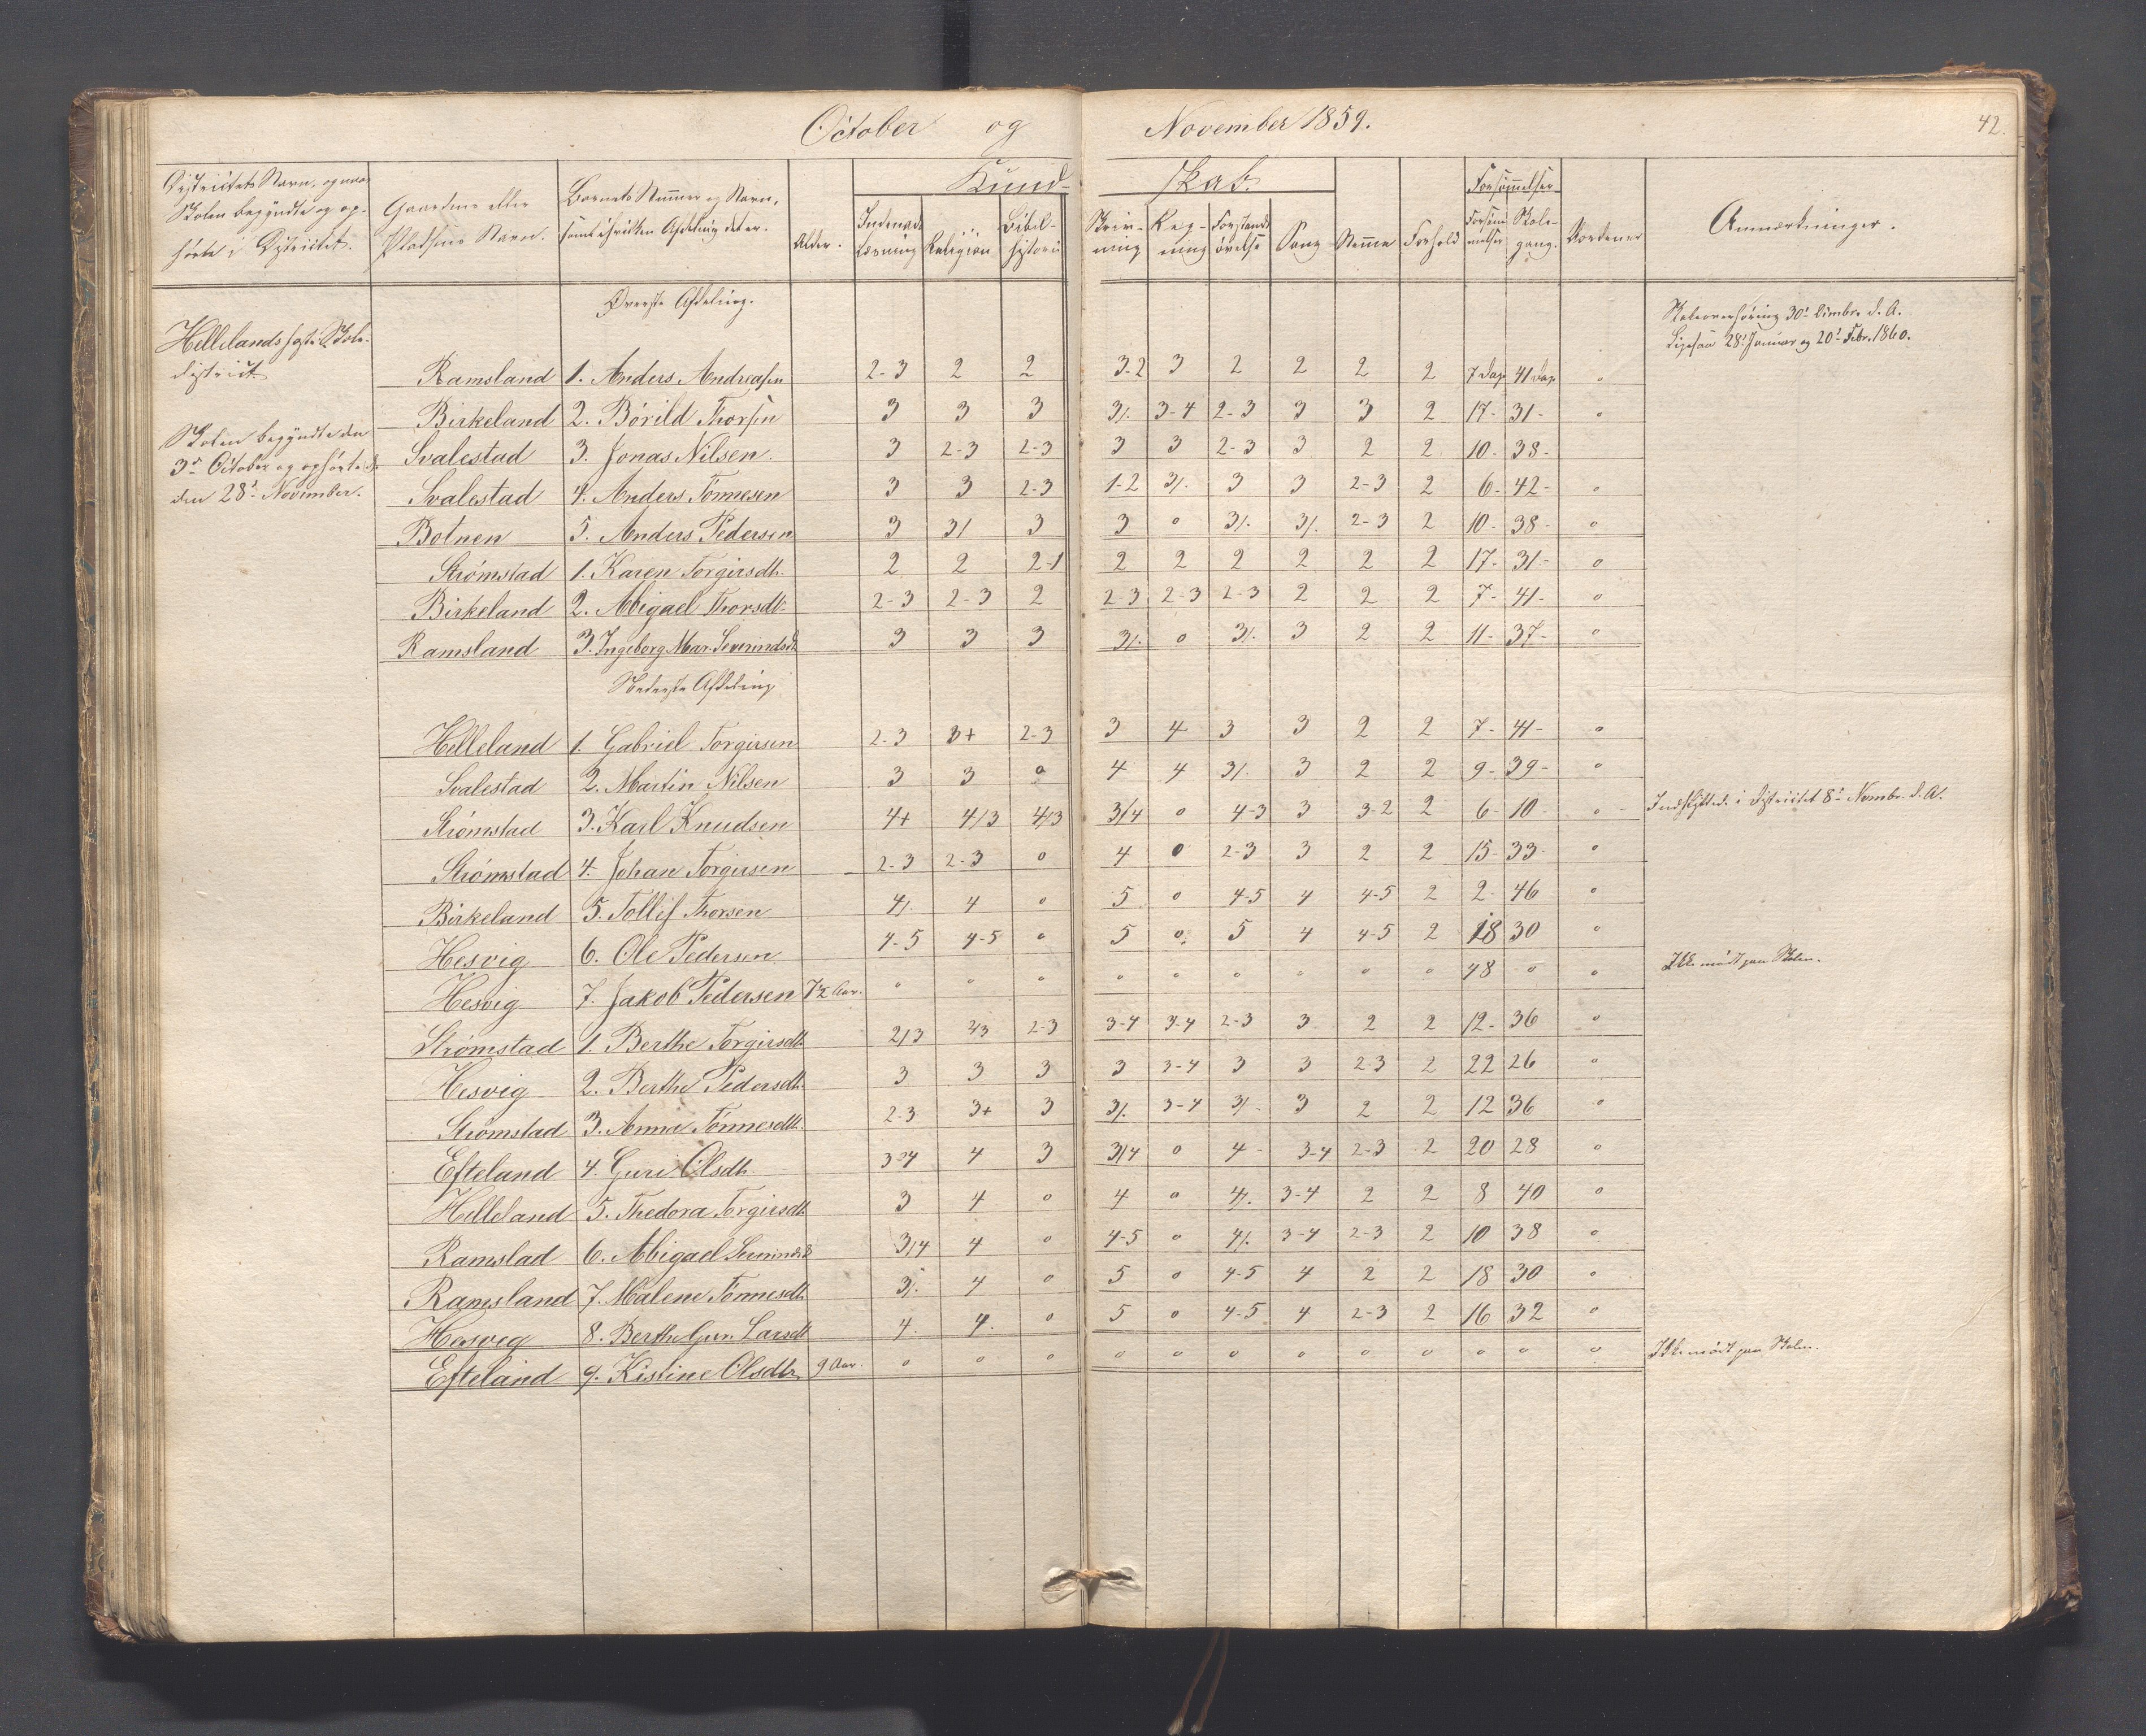 October og November 1859.
42.
Districtets Navn, og naar Skolen begyndte og ophörte i Districtet.
Gaardens eller Pladsens Navn.
Barnets Nummer og Navn, samt i hvilken Afdeling det er.
Alder.
Kundskab.
Indenadslæsning
Religion
Bibelhistorie
Skrivning
Regning
Forstandsövelse
Sang
Stemme
Forhold
Forsømmelser
Skolegang.
Anmærkninger.
Hellelands faste Skoledistrict
Skolen begyndte den 3die October og ophörte den 28de November.
Øverste Afdeling.
Ramsland 1. Anders Andreasen 2-3 2 2 3-2 3 2 2 2 2 7 Dage 41 Dage o
Birkeland 2. Börild Thorsen 3 3 3 3/. 3-4 2-3 3 3 2 17- 31- o
Svalestad 3. Jonas Nilsen. 3 2-3 2-3 3 3 2-3 3 2 2 10- 38-
Svalestad 4. Anders Tönnesen 3 3 2-3 1-2 3/. 3 3 2-3 2 6- 42- o
Botnen 5. Anders Pedersen 3 3/ 3 3 o 3/. 3/. 2-3 2 10- 38- o
Strömstad 1. Karen Torgirsdtr. 2 2 2-1 2 2 2 2 2 2 17- 31- o
Birkeland 2. Abigael Thorsdt. 2-3 2-3 2 2-3 2-3 2-3 2 2 2 7- 41- o
Ramsland 3. Ingeborg Mar. Severindsdt 3 3 3 3/. o 3/. 3 2 2 11- 37- o
Nederste Afdeling
Helleland 1. Gabriel Torgirsen 2-3 3+ 2-3 3 4 3 3 2 2 7- 41- o
Svalestad 2. Martin Nilsen 3 3 o 4 4 3/. 3 2 2 9- 39- o
Strömstad 3. Karl Knudsen 4+ 4/3 4/3 3/4 o 4-3 3 3-2 2 6- 10- o Indflyttede i Districtet 8de Novembr. d. A.
Strömstad 4. Johan Torgirsen 2-3 2-3 o 4 o 2-3 3 2 2 15- 33- o
Birkeland 5. Tollif Thorsen 4/. 4 o 5 o 4-5 4 4-5 2 2- 46 o
Hesvig 6. Ole Pedersen 4-5 4-5 o 5 o 5 4 4-5 2 18 30 o
Hesvig 7. Jakob Pedersen 7½ Aar. o o o o o o o o o 48 o o Ikke mödt paa Skolen.
Strömstad 1. Berthe Torgirsdt. 2/3 2/3 2-3 3-4 3-4 2-3 3 2 2 12- 36 o
Hesvig 2. Berthe Pedersdt. 3 3 3 3 3-4 3 3 2-3 2 22 26 o
Strömstad 3. Anna Tönnesdtr. 2-3 3+ 3 3/. 3-4 3/. 3 2 2 12 36 o
Efteland 4. Guri Olsdtr. 3-4 4 3 3/4 o 4- 3-4 2-3 2 20 28 o
Helleland 5. Thedora Torgirsdt. 3 4 o 4 o 4/. 3-4 2 2 8 40 o
Ramslad 6. Abigael 3/4 4 o 4-5 o 4/. 3-4 2-3 2 10 38 o
Ramsland 7. Malene Tönnesdt. 3/. 4 o 5 o 4-5 4 2 2 18 30 o
Hesveg 8. Berthe Gur. Larsdt 4. 4. o 5 o 4-5 4 2-3 2 16 32 o
Efteland 9. Kistine Olsdtr. 9 Aar. o o o o o o o o o o o o Ikke mödt paa Skolen.
Skoleoverhøring 30te d. A.
Ligesaa 28de Januar og 20de Febr. 1860.